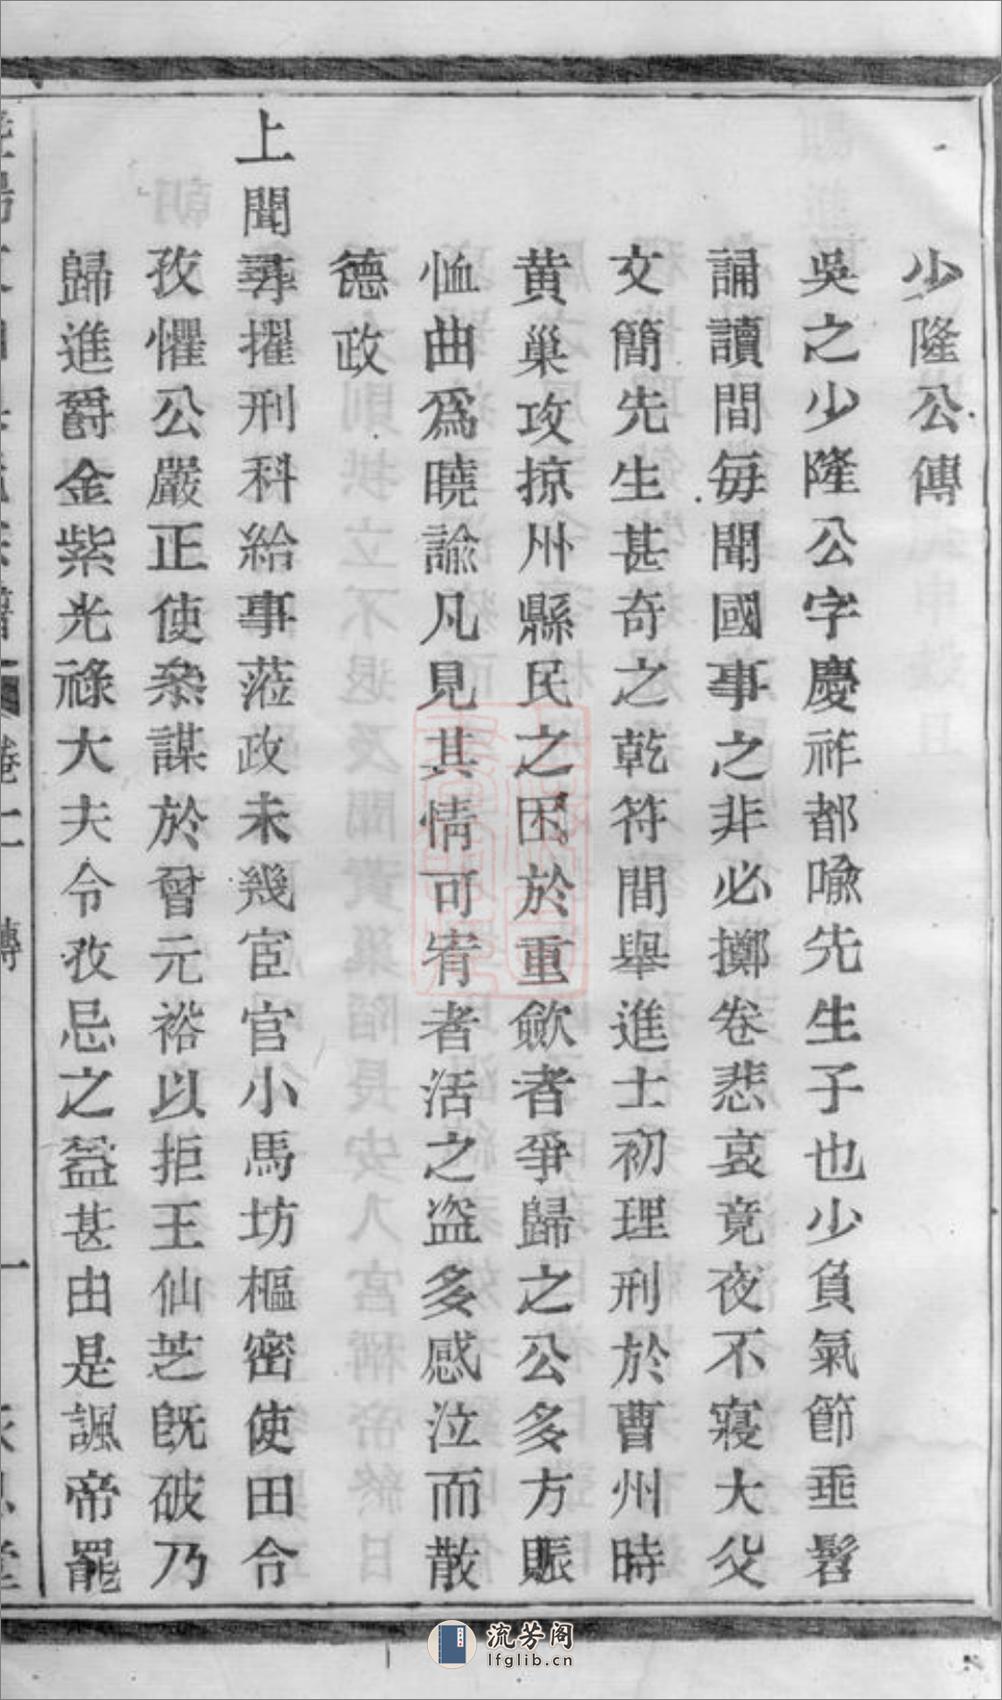 少隆公傳
吳之少隆公字慶祚都喩先生子也少負氣節垂髫
誦讀間每聞國事之非必擲卷悲哀竟夜不寢大父
文簡先生甚奇之乾符間舉進士初理刑於曹州時
黄巢攻掠州縣民之困於重歛者爭歸之公多方賑
恤曲爲曉諭凡見其情可宥者活之盗多感泣而散
德政
上聞尋擢刑科給事蒞政未幾宦官小馬坊樞密使田令
孜懼公嚴正使叅謀於曾元裕以拒王仙芝旣破乃
歸進爵金紫光祿大夫令孜忌之益甚由是諷帝罷
卷上 傳
一
流芳阁
lfglib.cn